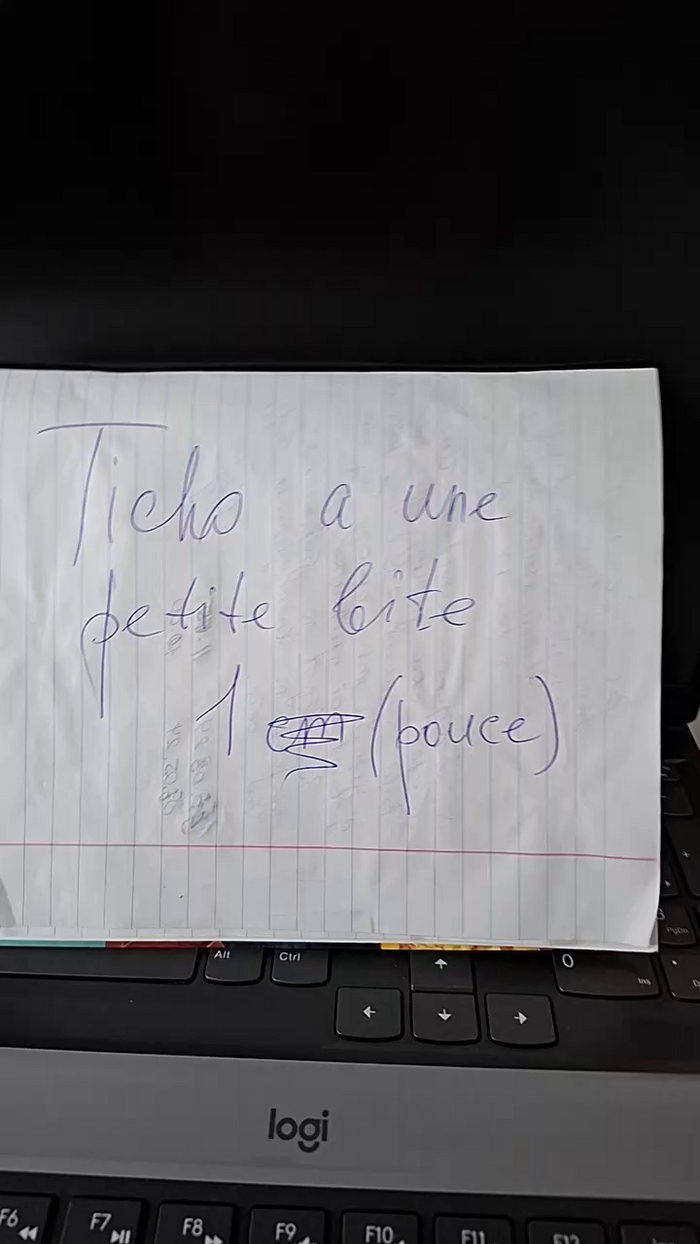 Ticho a une
petite bite
1 (pouce)
Alt
Ctrl
0
Ins
PgDn
logi
F6
F7
F8
F9
F10
F11
F12